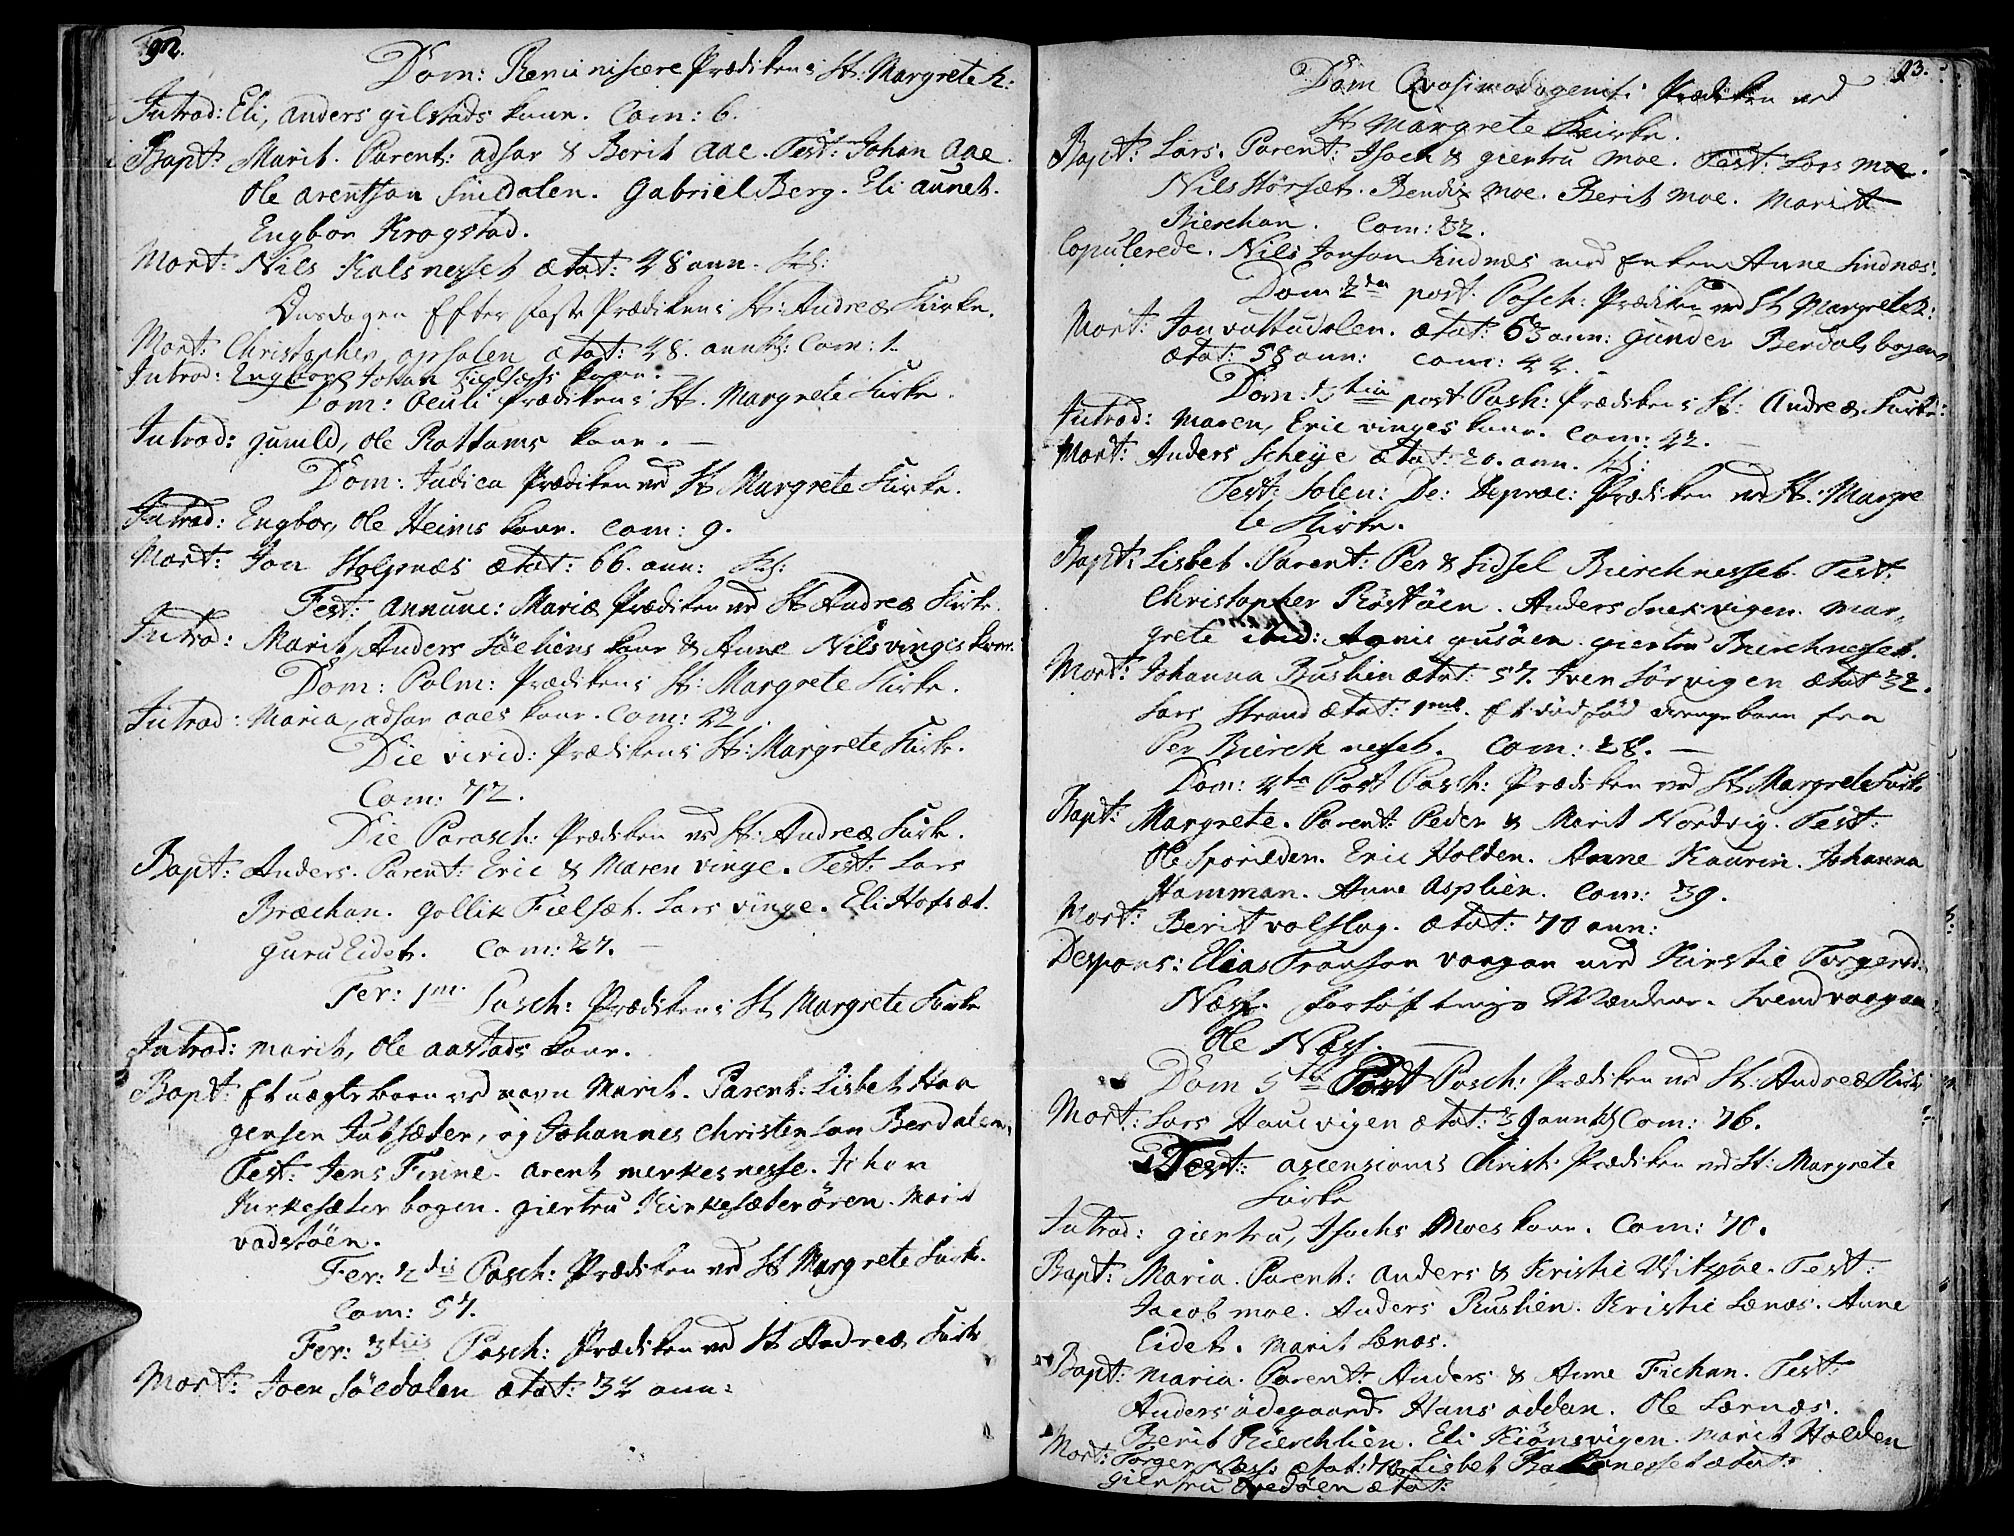 92.
Dom: Reminiscere Prædiken i St: Margrete K:
Introd: Eli, Anders gilstads kone. Com: 6.
Bapt: Marit. Parent: adsar & Berit Aae. Test: Johan Aae.
Ole arentson Sindalen. Gabriel Berg. Eli aunet.
Engbor Krogstad.
Mort: Nils Kalsnesset ætat: 48 ann.
Onsdagen Efter faste Prædiken i St: Andreæ Kirke.
Mort: Christopher opsalen ætat: 28. ann: Com: 1.
Introd: Engbor Johan Fielsets kone.
Dom: Oculi Prædiken i St. Margrete Kirke.
Introd: gunild, Ole Rottems kone.
Dom: Judica Prædiken ved St Margrete Kirke.
Introd: Engbor, Ole Heims kone. Com: 9.
Mort: Jon Stolpnæs ætat: 66. ann:
Fest: annunc: Mariæ Prædiken ved St Andreæ Kirke.
Introd: Marit, Anders Söeliens kone & Anne Nils vinges kone.
Dom: Palm: Prædiken i St: Margrete Kirke.
Introd: Maria, adsar aaes kone. Com: 22
Die virid: Prædiken i St: Margrete Kirke.
Com: 72.
Die Parasch: Prædiken ved St: Andreæ Kirke.
Bapt: Anders. Parent: Eric & Maren vinge. Test: Lars
Bræchan. gollik Fielsæt. Lars vinge. Eli Hofsæt.
guru Eidet. Com: 27.
Fer: 1ma Pasch: Prædiken i St Margrete Kirke
Introd: marit, Ole aastads kone.
Bapt: Et uægte barn ved navn Marit. Parent: Lisbet Haa
gensen Jutsæter, og Johannes Christensen Berdalen.
Test: Jens Finne. arent merkesnesse. Johan
Kirkesæter bogen. giertru Kirkesæterören. Marit
vadstöen.
Fer: 2dis Pasch: Prædiken ved St Margrete Kirke.
Com: 57.
Fer: 3tiis Pasch: Prædiken ved St Andreæ Kirke
Mort: Joen Söedalen ætat: 32 ann:
93.
Dom Qvasimodogeniti Prædiken ved
St Margrete Kirke.
Bapt: Lars. Parent: Isach & giertru moe. Test: Lars moe.
Nils Störset. Bendix moe. Berit moe. Marit
Bierchan. Com: 32.
Copulerede. Nils Jonson Sindnæs med Enken Anne Sindnæs.
Dom: 2da post. Pasch: Prædiken ved St Margrete K:
Mort: Jon vattudalen. ætat: 63 ann: gunder Berdalsbogen
ætat: 58 ann: com: 44.
Dom: 3tia post Pash: Prædiken i St: Andreæ Kirke:
Introd: Maren, Eric vinges kone. Com: 42.
Mort: Anders Scheye ætat: 20. ann.
Fest: Solen: De: Depræc: Prædiken ved St: Margre
te Kirke.
Bapt: Lisbet. Parent: Per & Sidsel Bierchnesset. Test:
Christopher Röstöen. Anders Snekvigen. Mar-
grete ibid: Anne gusöen. giertru Bierchnesset.
Mort: Johanna Ruslien ætat: 57. Iven Sörvigen ætat 32.
Lars Strand ætat: Et dödfød drengebarn fra
Per Bierchnesset. Com: 28.
Dom: 4ta Post Pasch: Prædiken ved St Margrete Kirke
Bapt: Margrete. Parent: Peder & Marit Nordvig. Test:
Ole Sporilden. Eric Holden. Anne Kaurin. Johanna
Hamman. Anne Asplien. Com: 39.
Mort: Berit valslag. ætat: 70 ann:
Despons: Elias Franson vaagan med Kirstie Torgersd:
Næss. Forløftnings Mændene. Svend vaagan
Ole Næss.
Dom 5ta Post Pasch: Prædiken ved St: Andreæ Kirke
Mort: Lars Haucvigen ætat: 39 ann Com: 76.
Fest: ascensionis Christi Prædiken ved St: Margrete
Kirke
Introd: giertru, Isachs Moes kone. Com: 70.
Bapt: Maria. Parent: anders & Kristie Witsöe. Test:
Jacob moe. Anders Ruslien. Kristie Lænæs. Anne
Eidet. Marit Lænæs.
Bapt: Maria. Parent: Anders & Anne Fichan. Test:
Anders ødegaard Hans oddan. Ole Lærnæs.
Berit Bierchlien. Eli Kiönsvigen. Marit Holden
Mort: Torger Næss: ætat: 70. Lisbet nesset ætat:
giertru ætat: